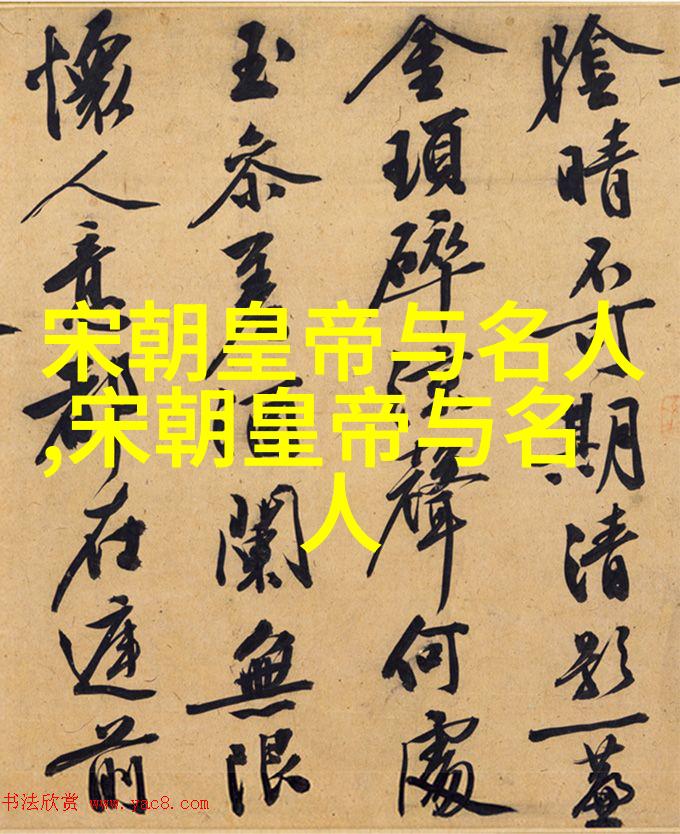 宋朝皇帝与名人
,宋朝皇帝与名
人
陰晴不可期清影一
金瑣碎聲何處
玉参差酒闌無限
懷人意都在前
书法欣赏 www.yac8.com